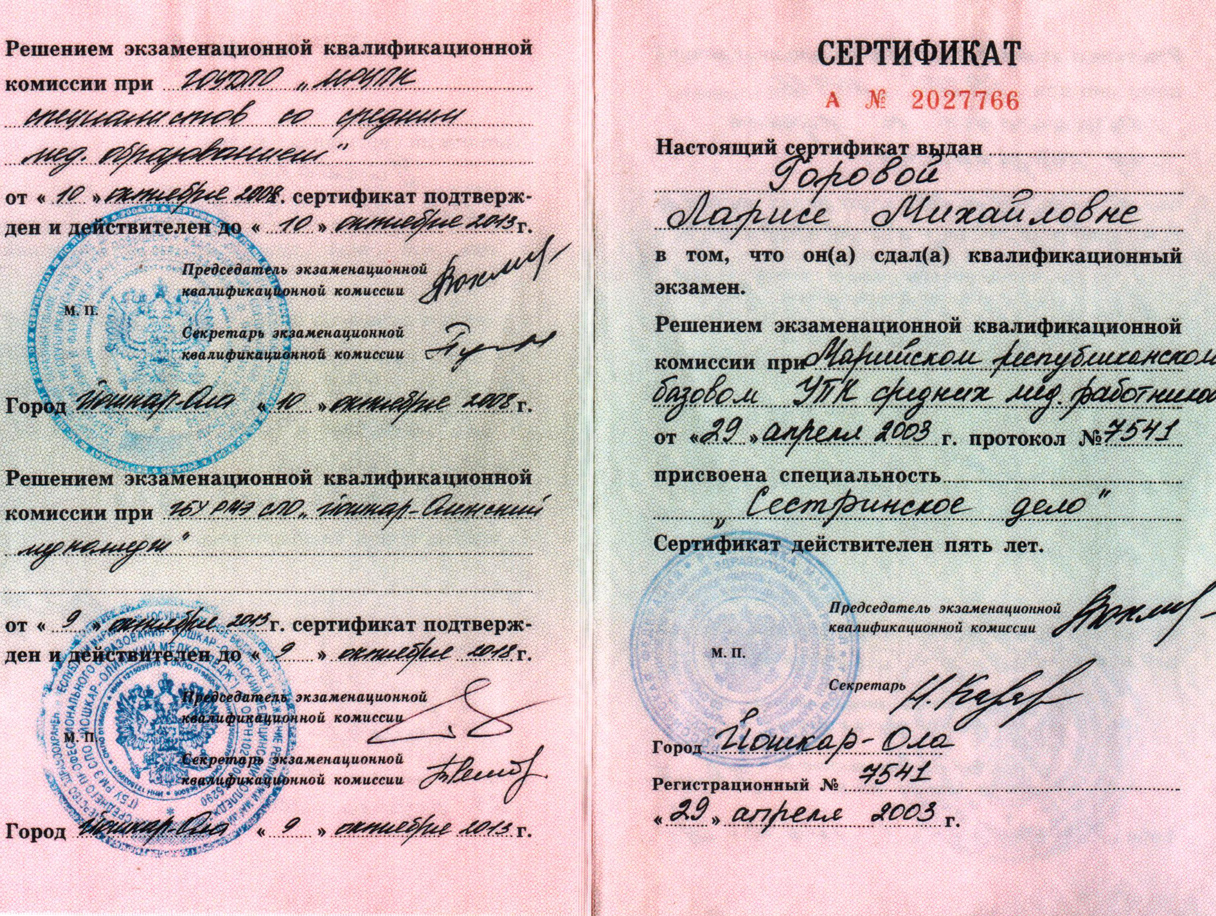 Решением экзаменационной квалификационной
комиссии при ГОУДПО „МРУПК
специалистов со средним
мед. образованием"
от « 10 » октября 2008 г. сертификат подтверж-
ден и действителен до « 10 » октября 2013 г.
Председатель экзаменационной
квалификационной комиссии
М. П.
Секретарь экзаменационной
квалификационной комиссии
Город Йошкар-Ола « 10 » октября 2008 г.
Решением экзаменационной квалификационной
комиссии при ГБУ РМЭ СПО „Йошкар-Олинский
медколледж"
от « 9 » октября 2013 г. сертификат подтверж-
ден и действителен до « 9 » октября 2018 г.
Председатель экзаменационной
квалификационной комиссии
М. П.
Секретарь экзаменационной
квалификационной комиссии
Город Йошкар-Ола « 9 » октября 2013 г.
СЕРТИФИКАТ
А № 2027766
Настоящий сертификат выдан
Горовой
Ларисе Михайловне
в том, что он(а) сдал(а) квалификационный
экзамен.
Решением экзаменационной квалификационной
комиссии при Марийском республиканском
базовом УПК средних мед. работников
от «29» апреля 2003 г. протокол № 7541
присвоена специальность
„Сестринское дело"
Сертификат действителен пять лет.
Председатель экзаменационной
квалификационной комиссии
М. П.
Секретарь
Город Йошкар-Ола
Регистрационный № 7541
«29» апреля 2003 г.